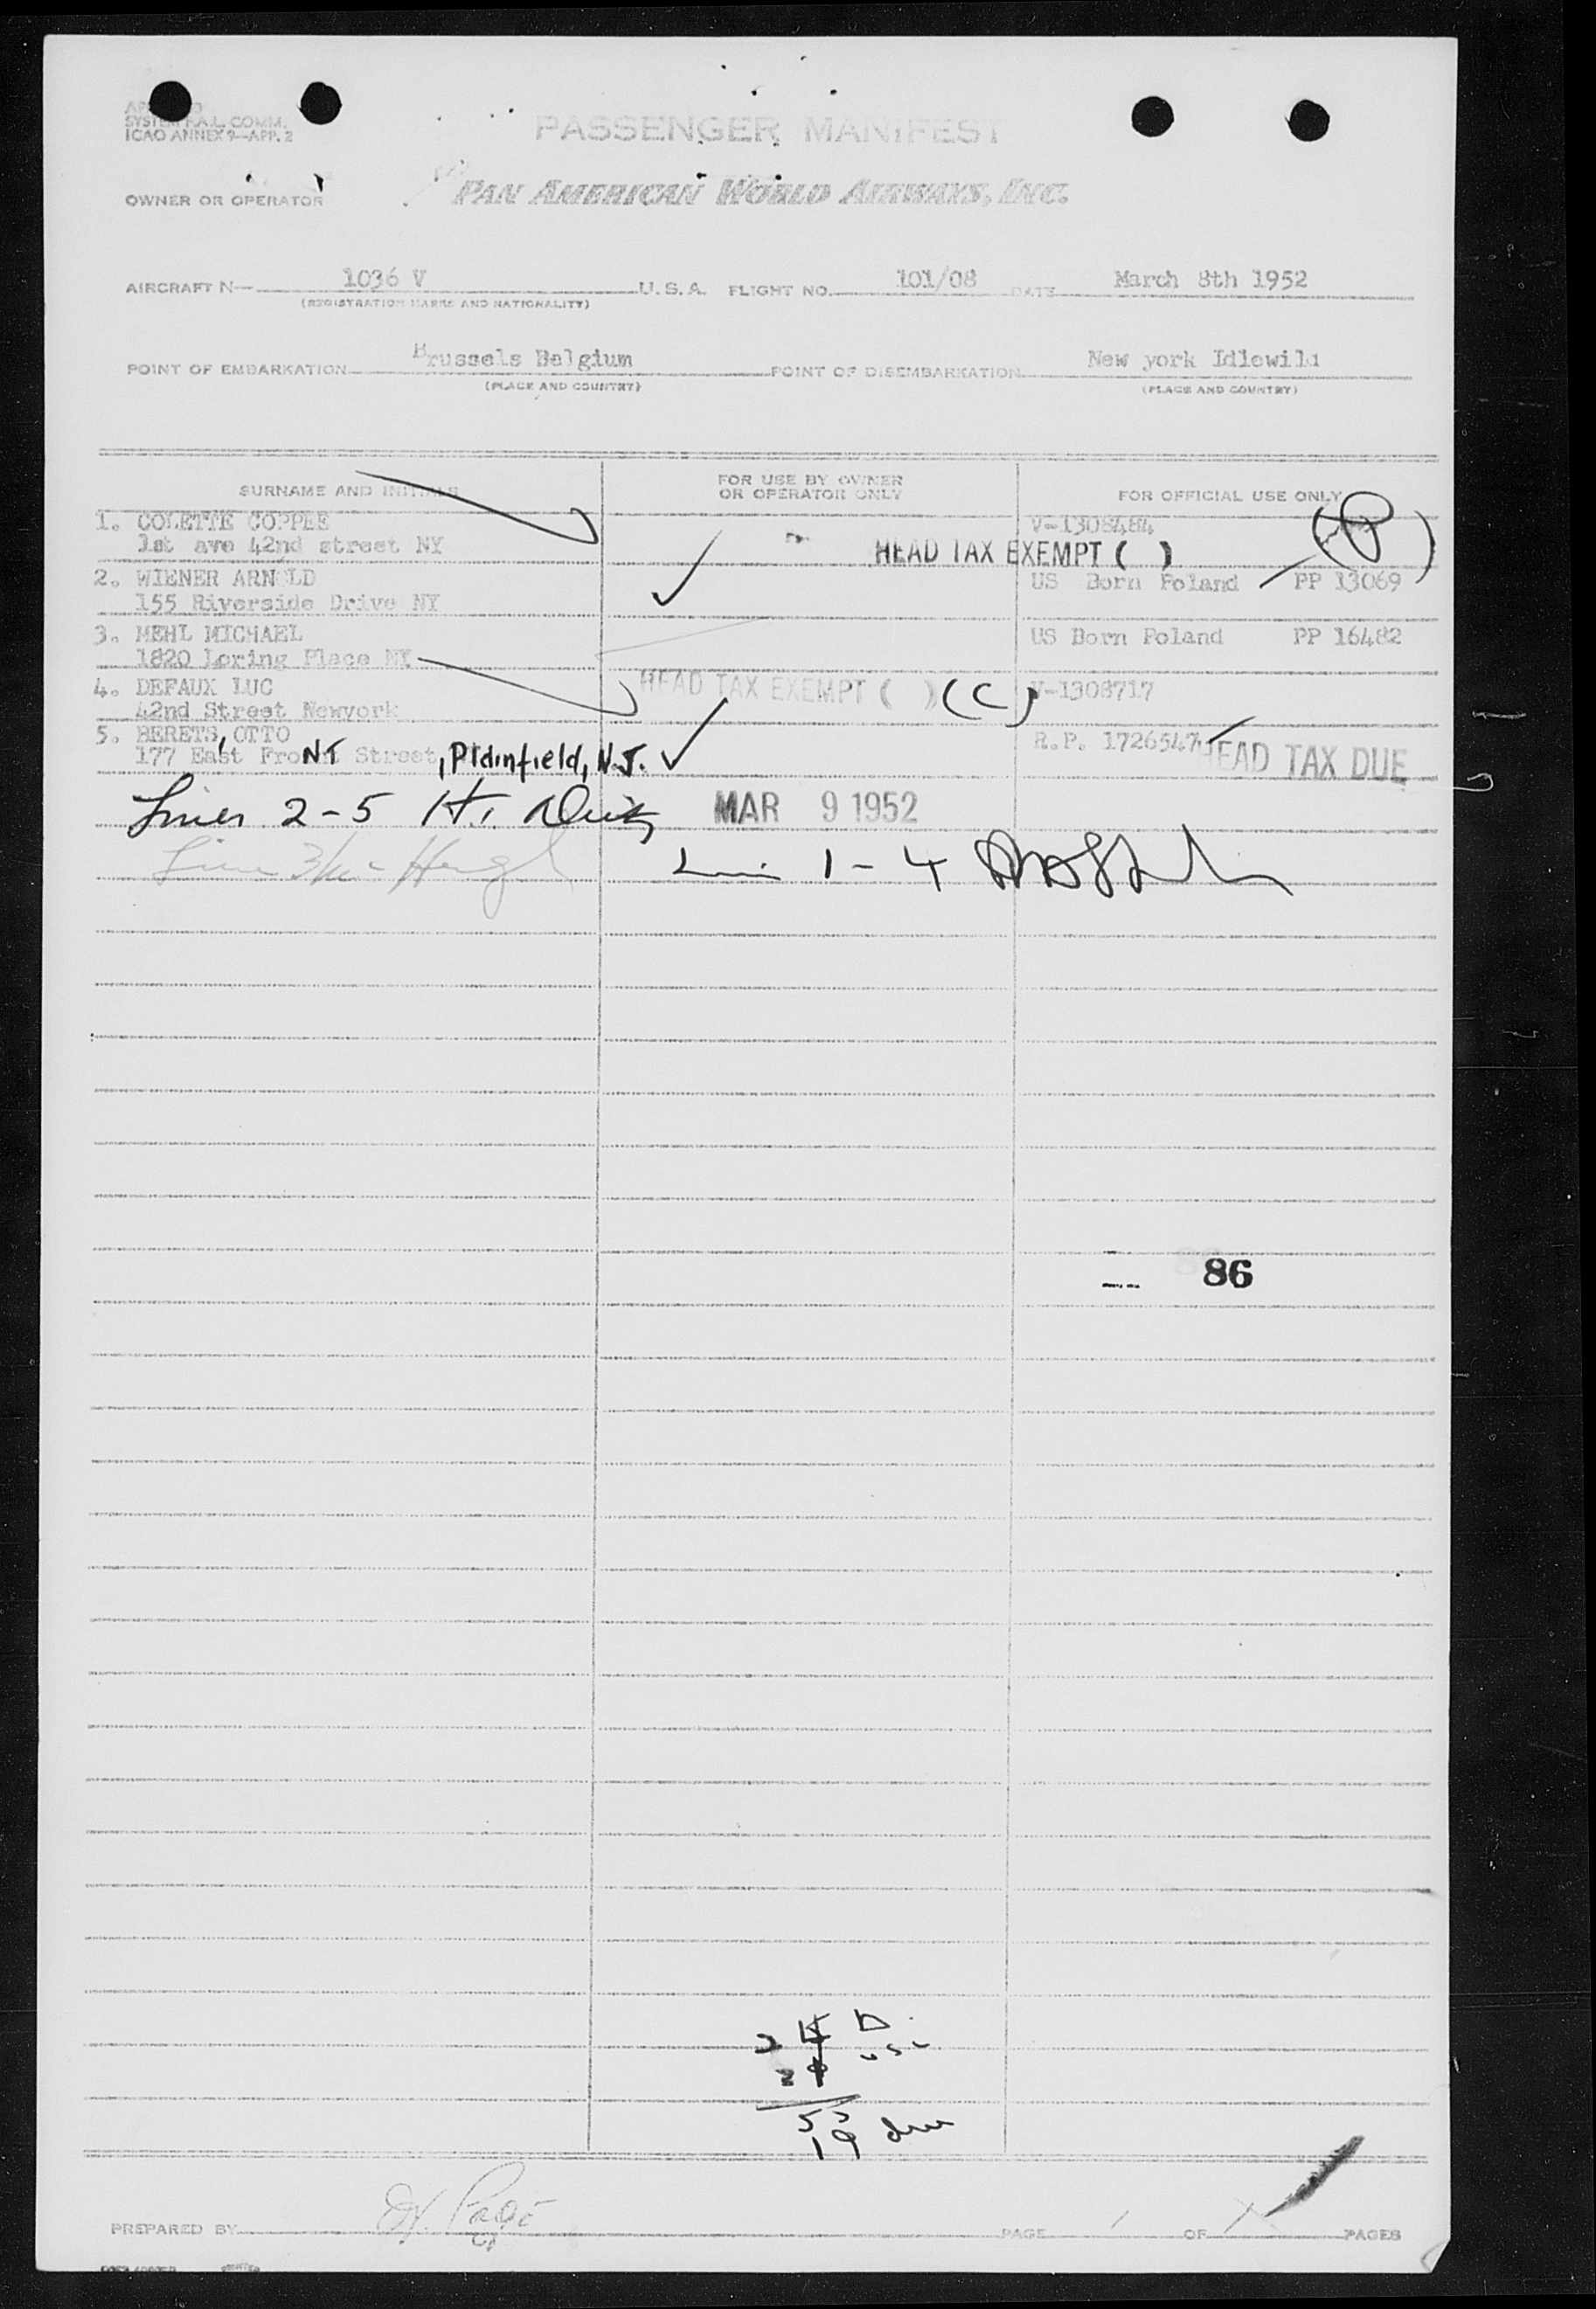 SYSTEM FAL. COMM.
ICAO ANNEX 9—APP. 2
PASSENGER MANIFEST
OWNER OR OPERATOR PAN AMERICAN WORLD AIRWAYS, INC.
AIRCRAFT N— 1036 V U.S.A. FLIGHT NO. 101/08 DATE March 8th 1952
(REGISTRATION MARKS AND NATIONALITY)
POINT OF EMBARKATION Brussels Belgium POINT OF DISEMBARKATION New york Idlewild
(PLACE AND COUNTRY) (PLACE AND COUNTRY)
SURNAME AND INITIALS FOR USE BY OWNER OR OPERATOR ONLY FOR OFFICIAL USE ONLY
1. COLETTE COPPEE V-1308484
1st ave 42nd street NY HEAD TAX EXEMPT ( )
2. WIENER ARNOLD US Born Poland PP 13069
155 Riverside Drive NY
3. MEHL MICHAEL US Born Poland PP 16482
1820 Loring Place NY
4. DEFAUX LUC HEAD TAX EXEMPT ( ) (C) V-1308717
42nd Street Newyork
5. BERETS, OTTO R.P. 1726547 HEAD TAX DUE
177 East FroNT Street, Plainfield, N.J.
Lines 2-5 MAR 9 1952
1-4
86
53
19
PREPARED BY PAGE 1 OF PAGES